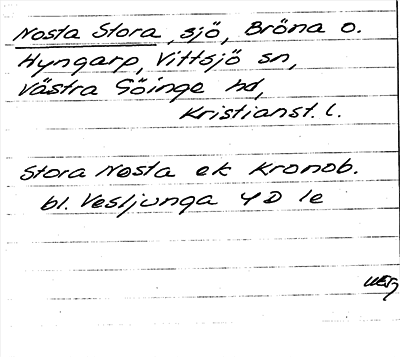 Nosta Stora, sjö, Bröna o.
Hyngarp, Vittsjö sn,
Västra Göinge hd,
Kristianst. l.
Stora Nosta ek Kronob.
bl. Vesljunga 4D le